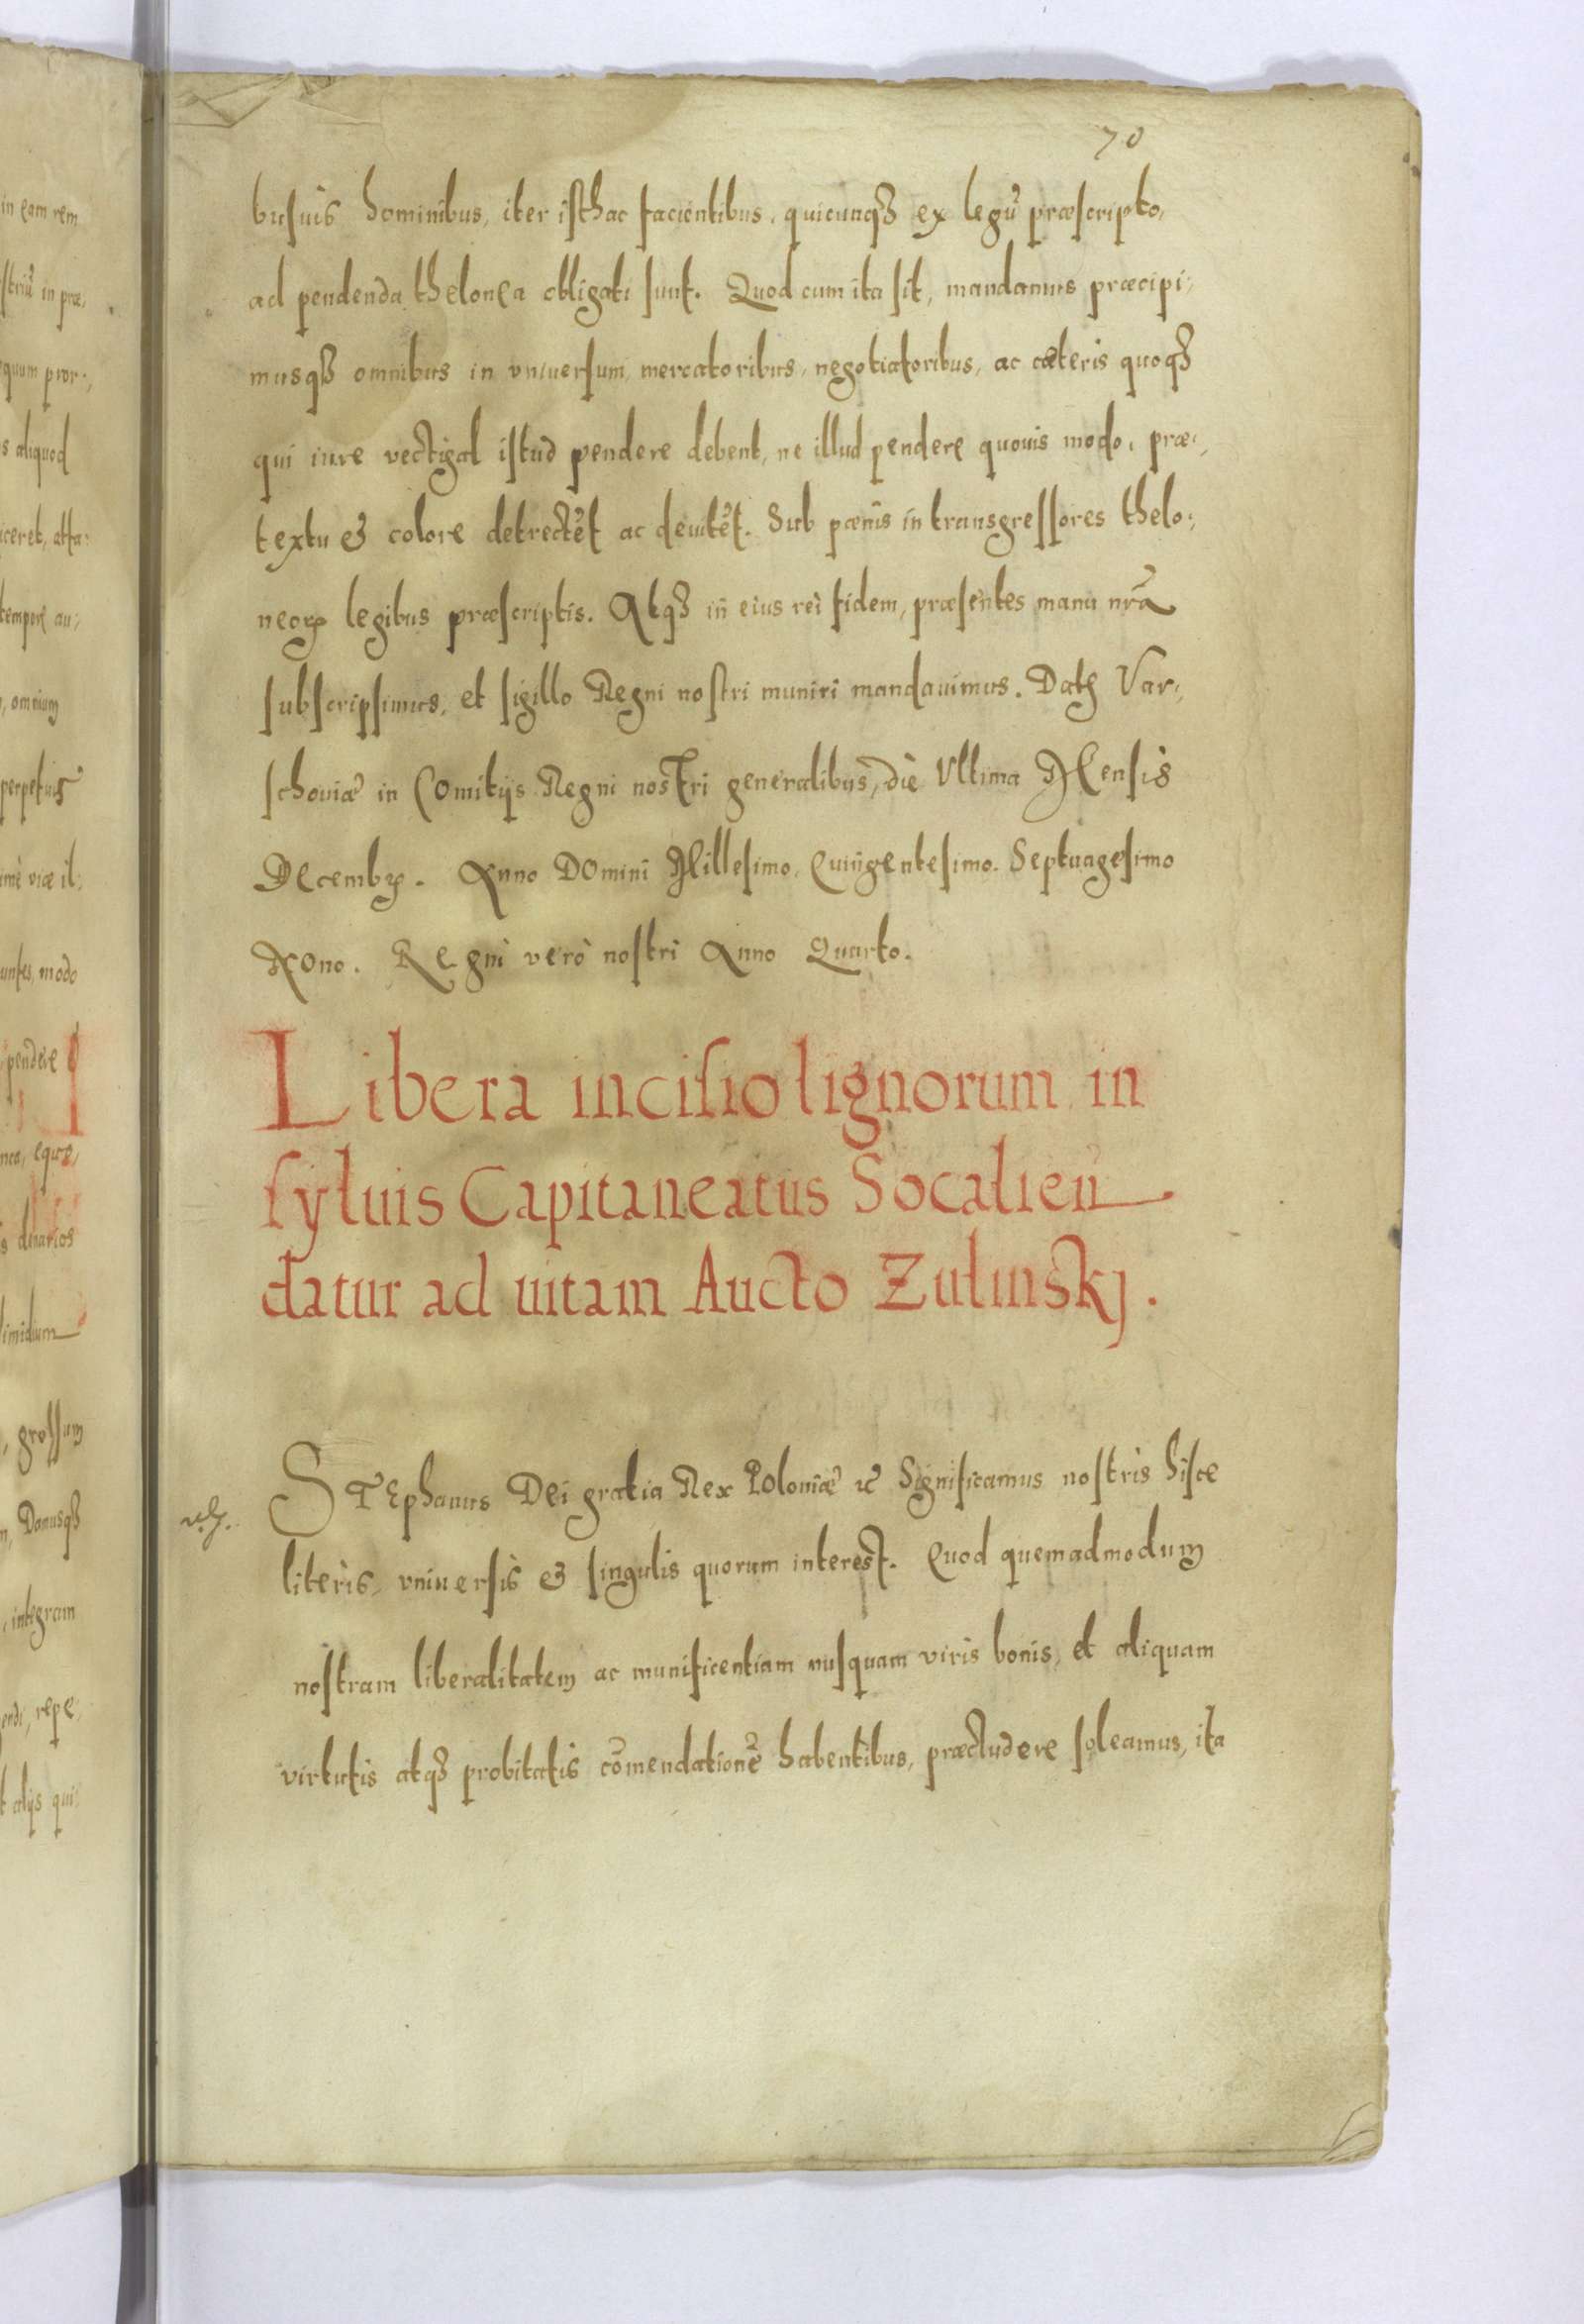 70
busuis hominibus, iter isthac facientibus, quicunqȝ ex legũ præscripto,
ad pendenda thelonea obligati sunt. Quod cum ita sit, mandamus præcipi,
musqȝ omnibus in vniuersum, mercatoribus, negotiatoribus, ac cæteris quoqȝ
qui iure vectigal istud pendere debent, ne illud pendere quouis modo, præ,
textu & colore detrectẽt ac deuitẽt. Sub pœnis in transgressores thelo,
neoꝝ legibus præscriptis. Atqȝ in eius rei fidem, præsentes manu nr̃a
subscripsimus, et sigillo Regni nostri muniri mandauimus. Datȩ Var,
schouiæ in Comitijs Regni nostri generalibus, die Vltima Mensis
Decembꝝ. Anno Domini Millesimo, Quingentesimo. Septuagesimo
Nono. Regni verò nostri Anno Quarto.
Libera incisio lignorum in
syluis Capitaneatus Socalień
datur ad uitam Aucto Zulinskj.
STEphanus Dei gratia Rex Poloniæ ꝛc Significamus nostris hisce
literis, vniuersis & singulis quorum interest. Quod quemadmodum
nostram liberalitatem ac munificentiam nusquam viris bonis, et aliquam
virtutis atqȝ probitatis cõmendationẽ habentibus, præcludere soleamus, ita
in eam rem
striũ in præ,
quum pror,
s aliquod
iceret, atta
tempore au,
, omnium
perpetuis
imè viæ il,
untes, modo
pendere
nea, equo,
s denarios
dimidium
, grossum
n, Damusqȝ
, integram
endi, repe,
t alijs qui,